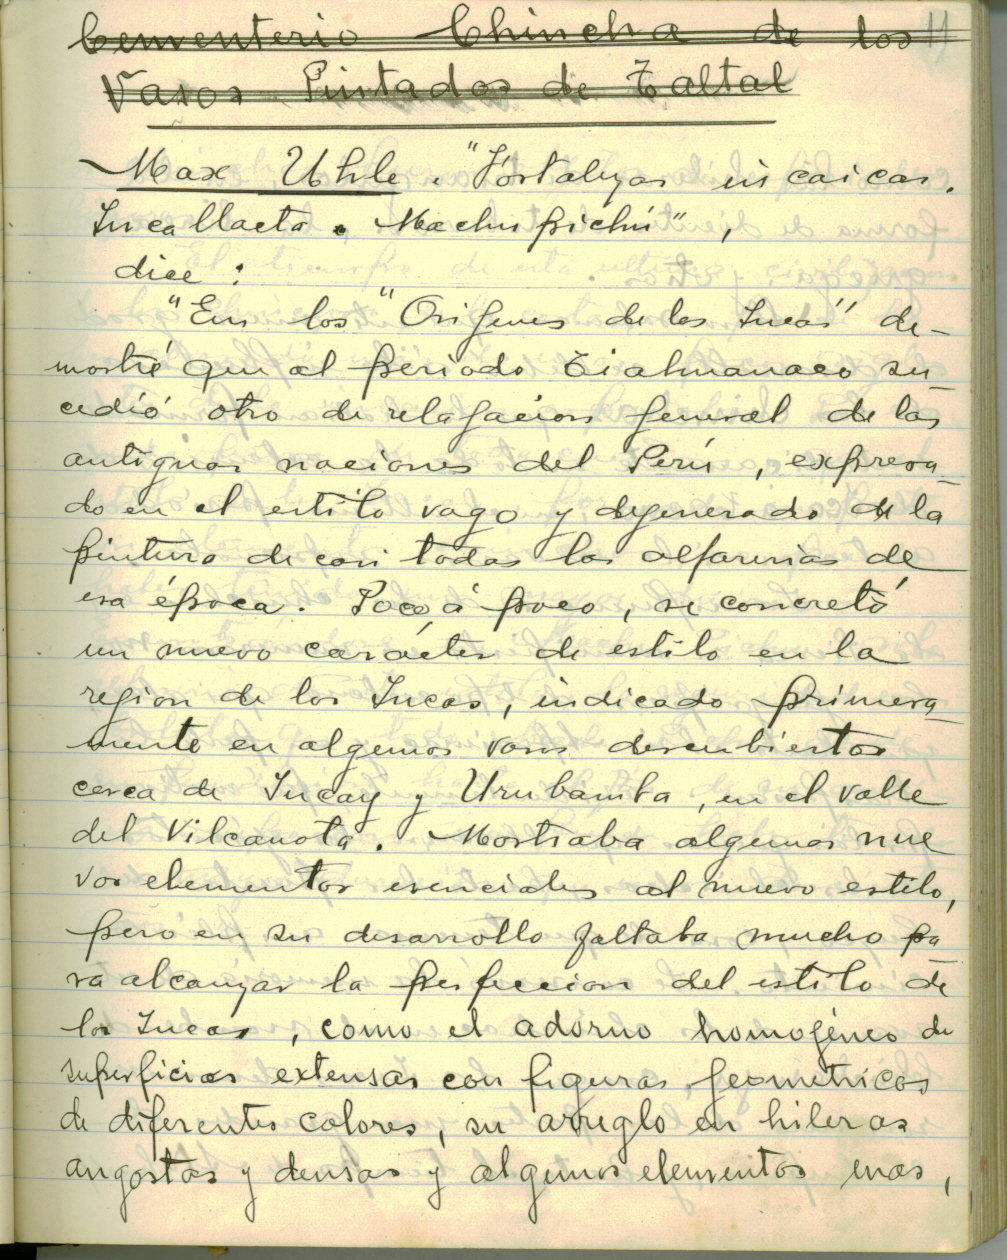 Cementerio Chincha de los 11
Vasos Pintados de Taltal
Max Uhle. "Fortalezas incaicas.
Incallacta. Machupichú",
dice:
"En los "Orígenes de los Incas" de-
mostré que al periodo Tiahuanaco su-
cedió otro de relajacion general de las
antiguas naciones del Perú, expresa-
do en el estilo vago y degenerado de la
pintura de casi todas las alfarerias de
esa época. Poco á poco, se concretó
un nuevo carácter de estilo en la
region de los Incas, indicado primera-
mente en algunos vasos descubiertos
cerca de Yucay y Urubamba, en el valle
del Vilcanota. Mostraba algunos nue
vos elementos esenciales al nuevo estilo,
pero en su desarrollo faltaba mucho pa-
ra alcanzar la perfeccion del estilo de
los Incas, como el adorno homogéneo de
superficies extensas con figuras geometricas
de diferentes colores, su arreglo en hileras
angostas y densas y algunos elementos mas,